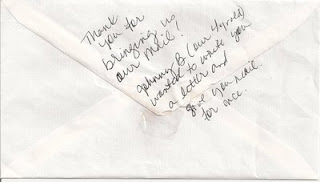 Thank
you for
bringing us
our mail!
Johnny B (our 4 yr old)
wanted to write you
a letter and
give you mail
for once.